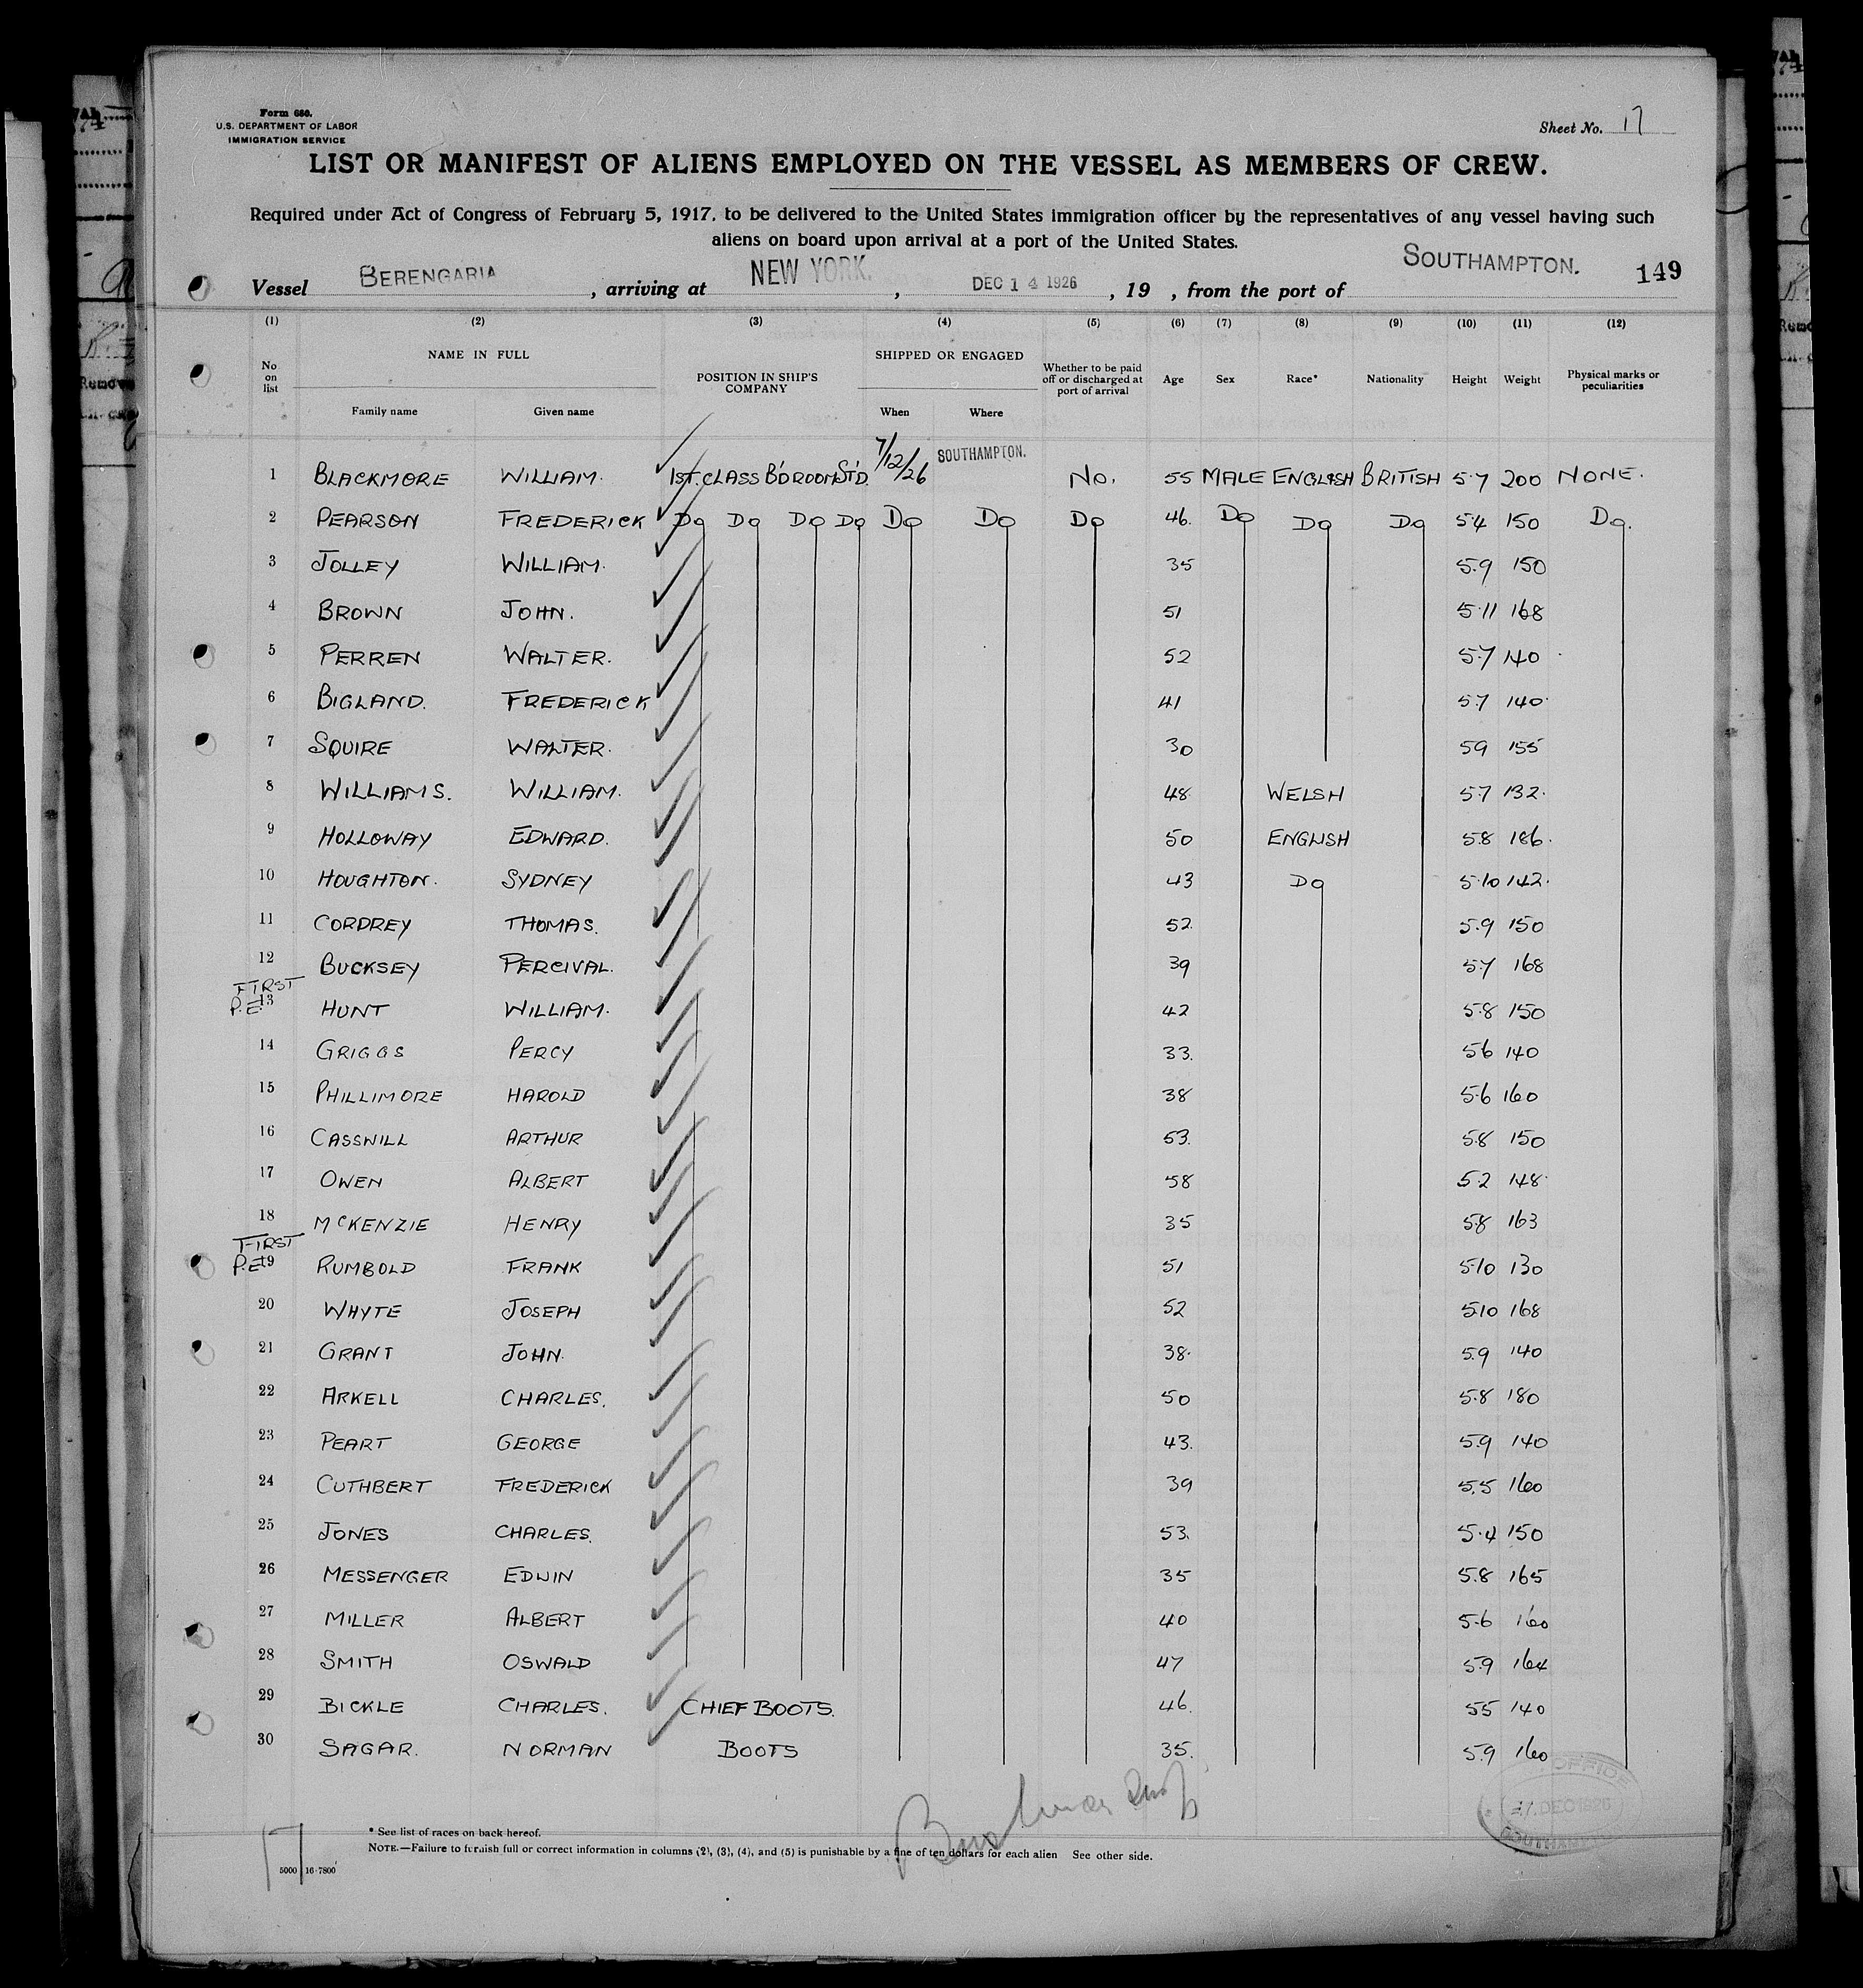 Form 680.
U.S. DEPARTMENT OF LABOR
IMMIGRATION SERVICE
Sheet No. 17
LIST OR MANIFEST OF ALIENS EMPLOYED ON THE VESSEL AS MEMBERS OF CREW.
Required under Act of Congress of February 5, 1917, to be delivered to the United States immigration officer by the representatives of any vessel having such
aliens on board upon arrival at a port of the United States.
Vessel BERENGARIA, arriving at NEW YORK., DEC 14 1926, 19 , from the port of SOUTHAMPTON. 149
(1) (2) (3) (4) (5) (6) (7) (8) (9) (10) (11) (12)
No on list NAME IN FULL Family name Given name POSITION IN SHIP'S COMPANY SHIPPED OR ENGAGED When Where Whether to be paid off or discharged at port of arrival Age Sex Race* Nationality Height Weight Physical marks or peculiarities
1 BLACKMORE WILLIAM. 1ST. CLASS B'DROOM ST'D. 7/12/26 SOUTHAMPTON. No. 55 MALE ENGLISH BRITISH 5·7 200 NONE.
2 PEARSON FREDERICK Do Do Do Do Do Do Do 46. Do Do Do 5·4 150 Do.
3 JOLLEY WILLIAM. 35 5·9 150
4 BROWN JOHN. 51 5·11 168
5 PERREN WALTER. 52 5·7 140
6 BIGLAND. FREDERICK 41 5·7 140
7 SQUIRE WALTER. 30 59 155
8 WILLIAMS. WILLIAM. 48 WELSH 5·7 132.
9 HOLLOWAY EDWARD. 50 ENGLISH 5·8 186.
10 HOUGHTON. SYDNEY 43 Do 5·10 142.
11 CORDREY THOMAS. 52. 5·9 150
12 BUCKSEY PERCIVAL. 39 5·7 168
FIRST
P.E. 13 HUNT WILLIAM. 42 5·8 150
14 GRIGGS PERCY 33. 5·6 140
15 PHILLIMORE HAROLD 38 5·6 160
16 CASSWILL ARTHUR 53. 5·8 150
17 OWEN ALBERT 58 5·2 148
18 McKENZIE HENRY 35 5·8 163
FIRST
P.E. 19 RUMBOLD FRANK 51 5·10 130
20 WHYTE JOSEPH 52 5·10 168
21 GRANT JOHN. 38. 5·9 140
22 ARKELL CHARLES. 50 5·8 180
23 PEART GEORGE 43. 5·9 140
24 CUTHBERT FREDERICK 39 5.5 160
25 JONES CHARLES. 53. 5·4 150
26 MESSENGER EDWIN 35 5.8 165
27 MILLER ALBERT 40 5·6 160
28 SMITH OSWALD 47 5·9 164
29 BICKLE CHARLES. CHIEF BOOTS. 46. 55 140
30 SAGAR. NORMAN BOOTS 35. 5·9 160
OFFICE
7. DEC 1926
SOUTHAMPTON
17
* See list of races on back hereof.
NOTE.—Failure to furnish full or correct information in columns (2), (3), (4), and (5) is punishable by a fine of ten dollars for each alien See other side.
5000 16-7800